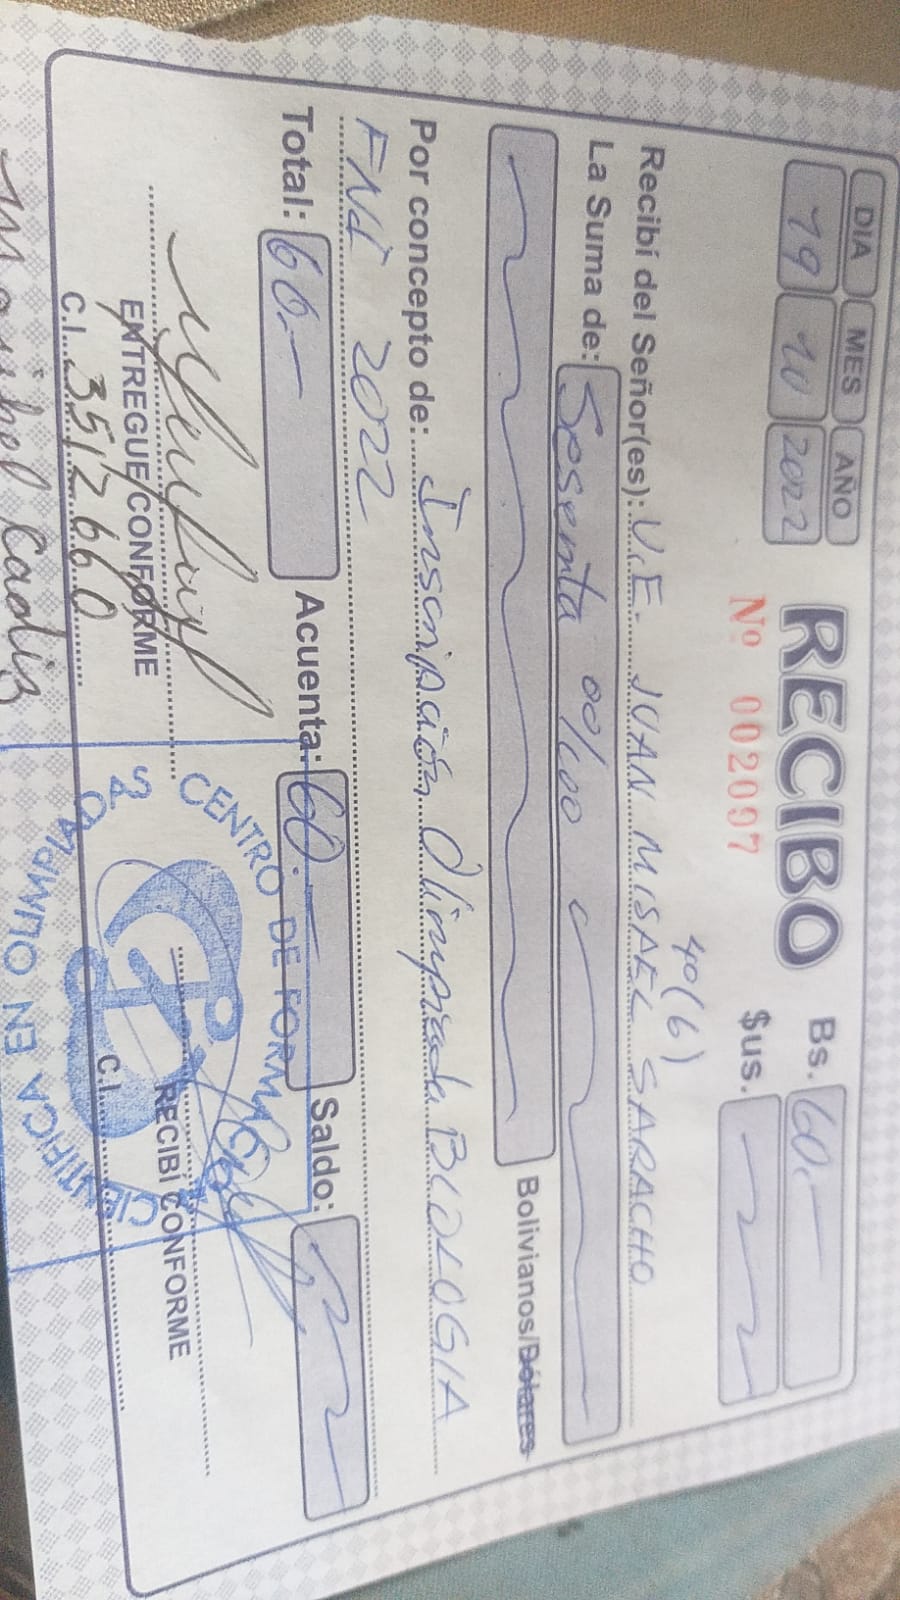 DIA MES AÑO
19 10 2022
RECIBO
Nº 002097
Bs. 60.-
$us.
40(6)
Recibí del Señor(es): U.E. JUAN MISAEL SARACHO
La Suma de: Sesenta 00/100
Bolivianos/Dólares
Por concepto de: Inscripción Olimpiada BIOLOGIA
FNI 2022
Total: 60.- Acuenta: 60.- Saldo:
ENTREGUE CONFORME
C.I. 3512660
RECIBÍ CONFORME
C.I.
CENTRO DE FORMACIÓN CIENTIFICA EN OLIMPIADAS
Cadiz